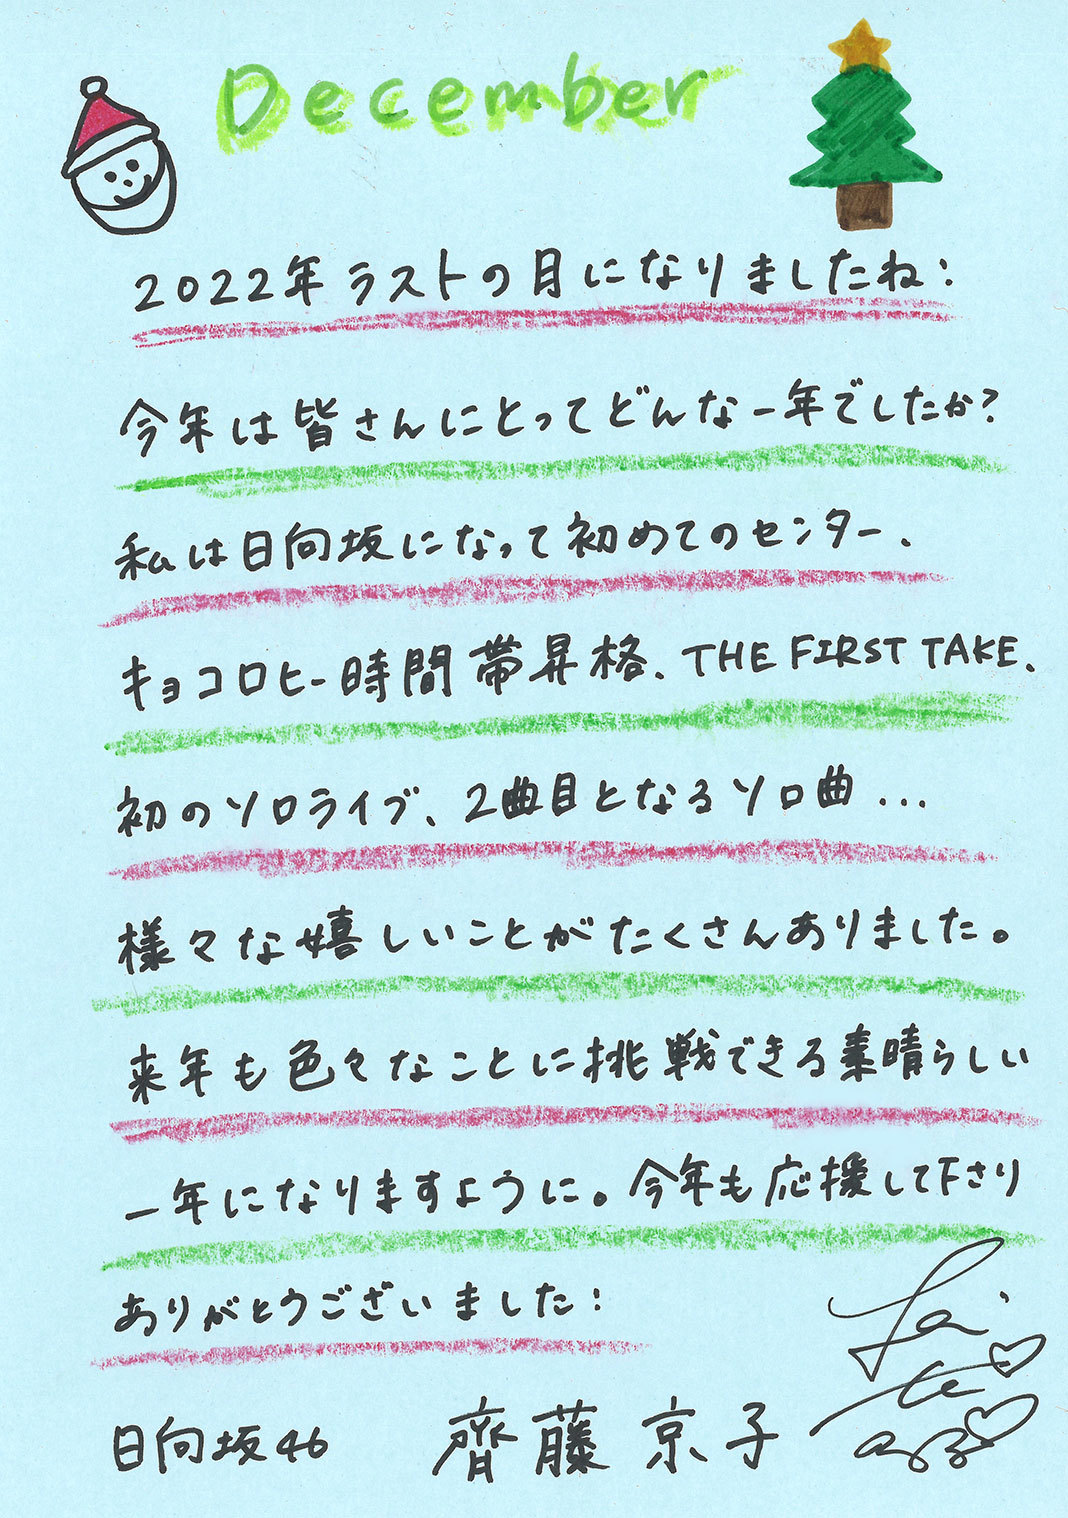 December
2022年ラストの月になりましたね:
今年は皆さんにとってどんな一年でしたか?
私は日向坂になって初めてのセンター、
キョコロヒー時間帯昇格、THE FIRST TAKE、
初のソロライブ、2曲目となるソロ曲...
様々な嬉しいことがたくさんありました。
来年も色々なことに挑戦できる素晴らしい
一年になりますように。今年も応援して下さり
ありがとうございました:
日向坂46 齊藤京子